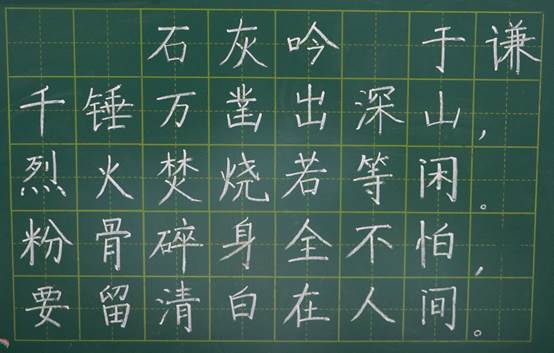 石灰吟 于谦
千锤万凿出深山，
烈火焚烧若等闲。
粉骨碎身全不怕，
要留清白在人间。